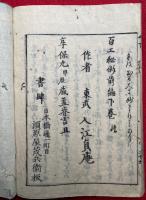 百工秘術前編下巻終
作者 東武 入江貞庵
享保九甲辰歳孟春吉旦
日本橋通一町目
書肆 須原屋茂兵衛板